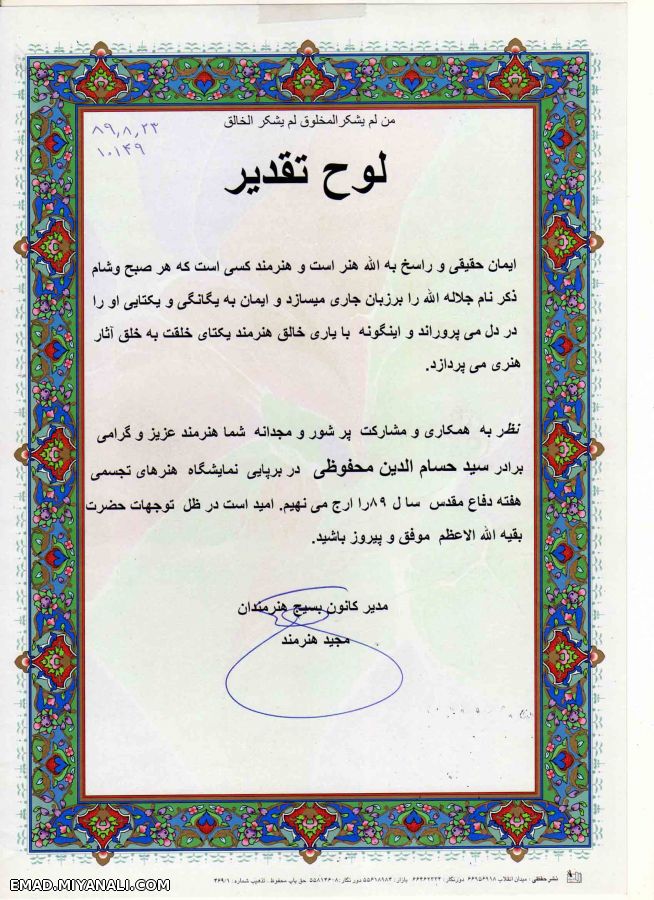 من لم یشکرالمخلوق لم یشکر الخالق
۸۹٫۸٫۲۳
۱۰۱۴۹
لوح تقدیر
ایمان حقیقی و راسخ به الله هنر است و هنرمند کسی است که هر صبح وشام
ذکر نام جلاله الله را برزبان جاری میسازد و ایمان به یگانگی و یکتایی او را
در دل می پروراند و اینگونه با یاری خالق هنرمند یکتای خلقت به خلق آثار
هنری می پردازد.
نظر به همکاری و مشارکت پر شور و مجدانه شما هنرمند عزیز و گرامی
برادر سید حسام الدین محفوظی در برپایی نمایشگاه هنرهای تجسمی
هفته دفاع مقدس سا ل ۸۹را ارج می نهیم. امید است در ظل توجهات حضرت
بقیه الله الاعظم موفق و پیروز باشید.
مدیر کانون بسیج هنرمندان
مجید هنرمند
نشر حفظی : میدان انقلاب ۶۶۹۵۶۹۱۸ دورنگار: ۶۶۴۶۲۲۲۴ بازار: ۵۵۶۱۸۹۸۴ دورنگار: ۵۵۸۱۴۶۰۸ حق چاپ محفوظ . تذهیب شماره: ۴۶۹/۱
EMAD.MIYANALI.COM